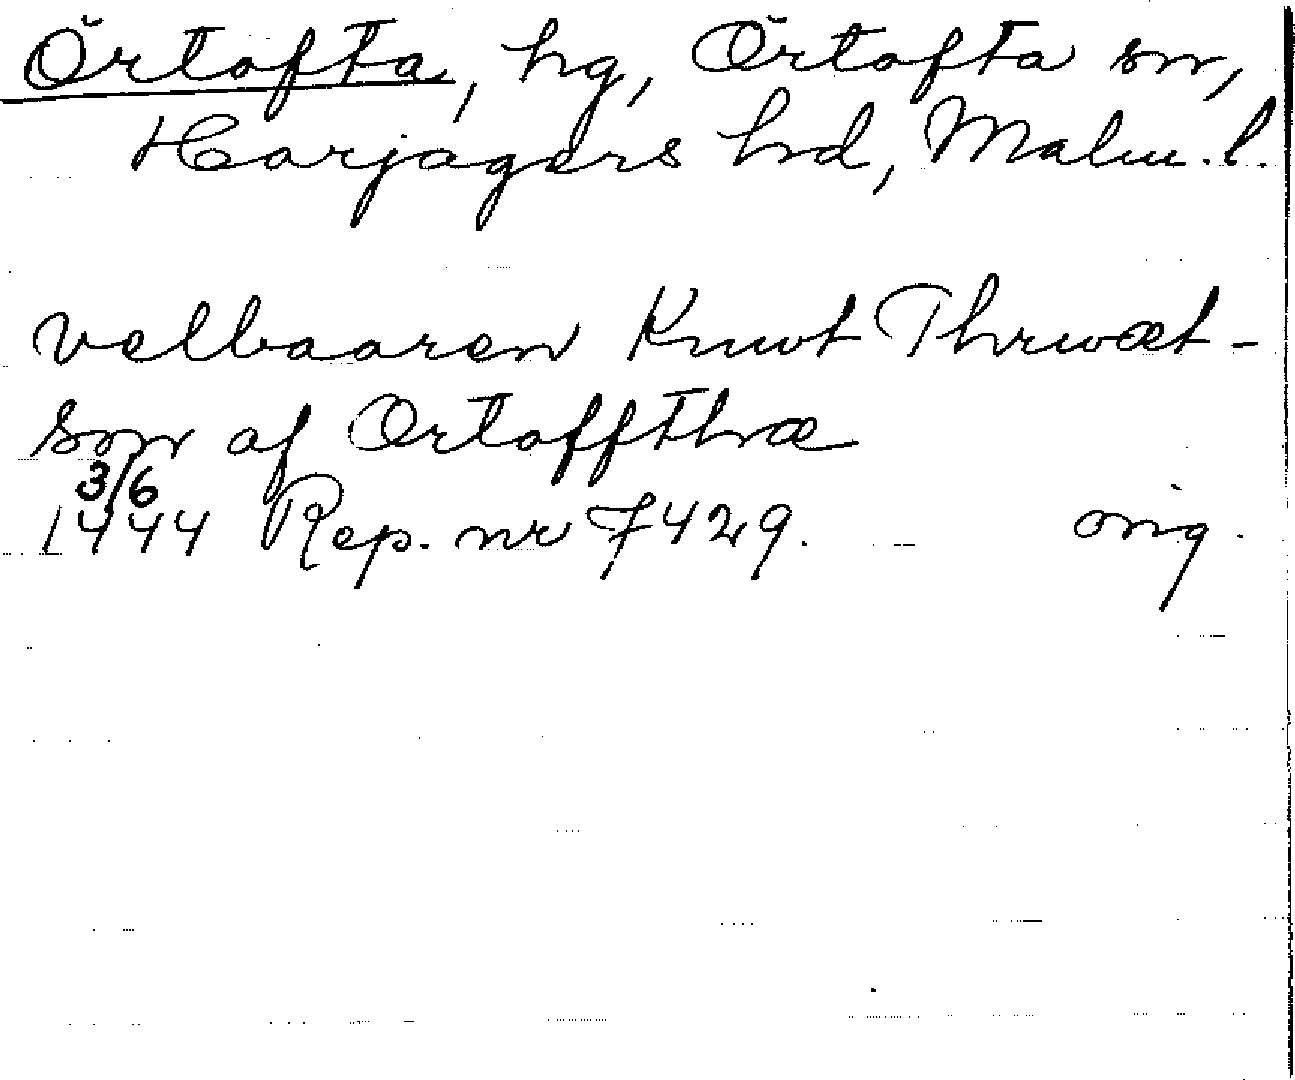 Örtofta, hg, Örtofta sn,
Harjagers hd, Malm. l.
velbaaren Knwt Thrwæt-
son af Ortoffthæ
3/6
1444 Rep. nr 7429. orig.